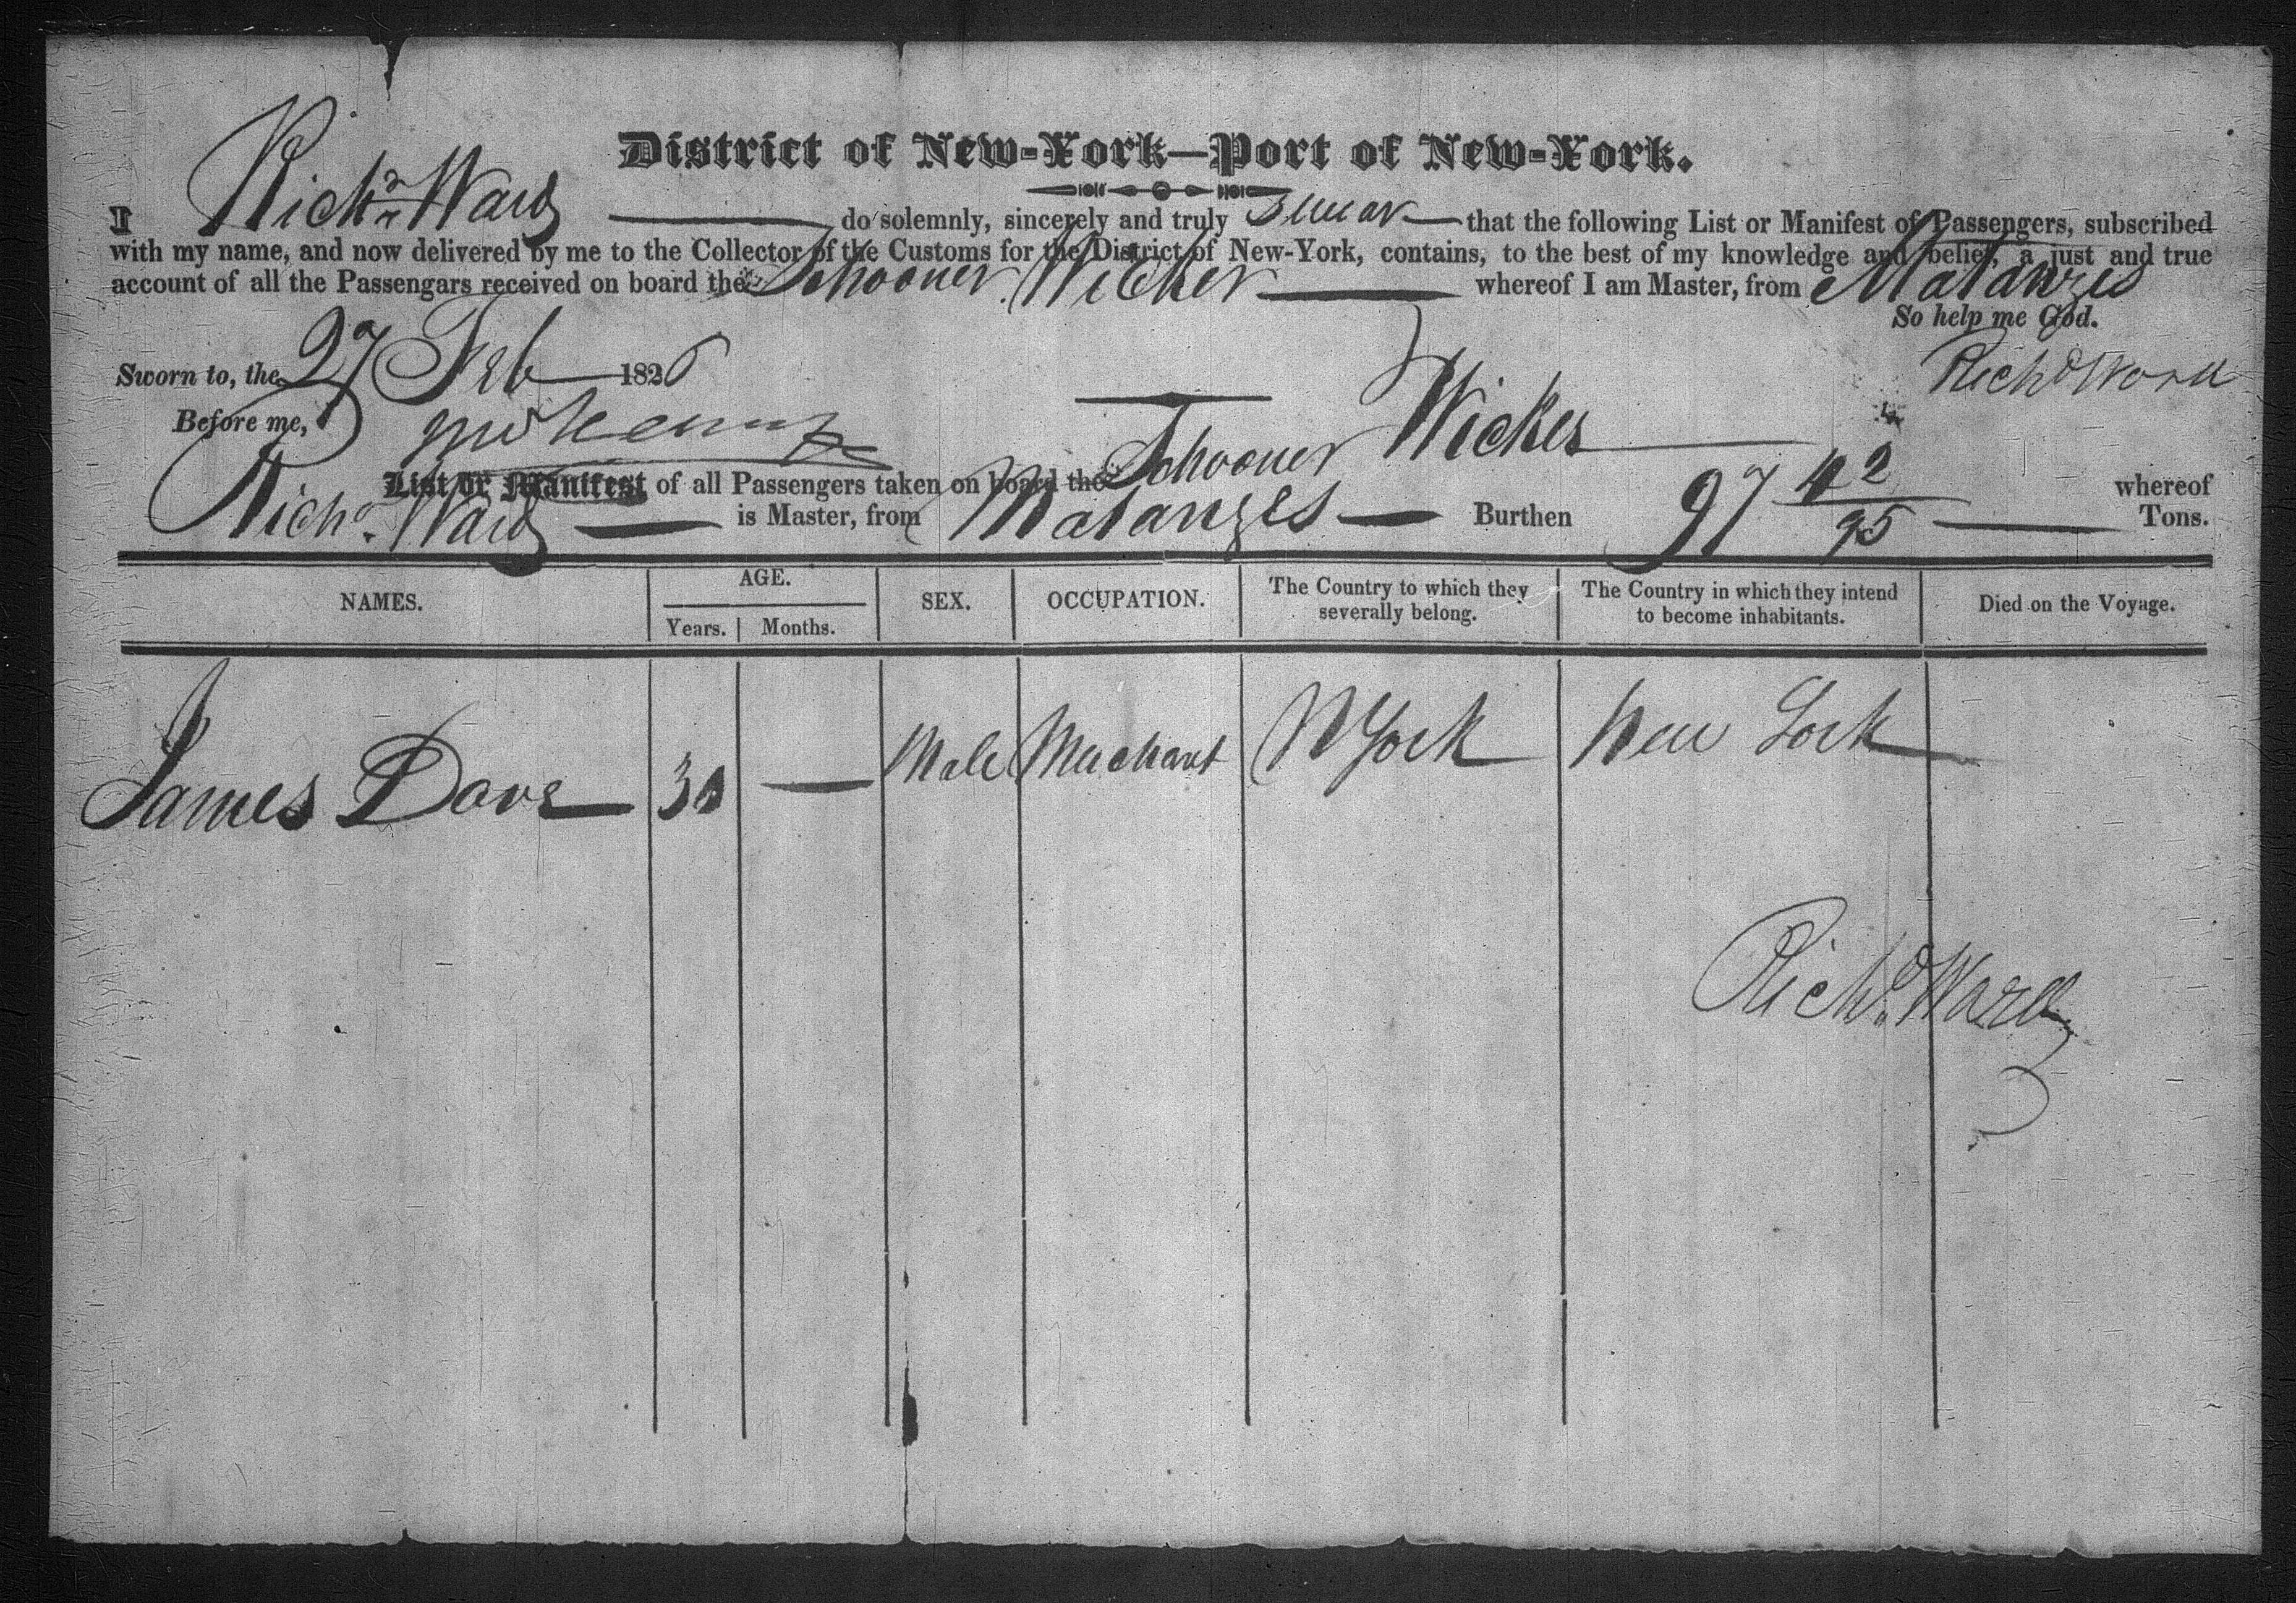 District of New-York—Port of New-York.
I Richd Ward do solemnly, sincerely and truly swear that the following List or Manifest of Passengers, subscribed
with my name, and now delivered by me to the Collector of the Customs for the District of New-York, contains, to the best of my knowledge and belief, a just and true
account of all the Passengars received on board the Schooner Wicker whereof I am Master, from Matanzes
So help me God.
Sworn to, the 27 Feb 1826
Richd Ward
Before me,
List or Manifest of all Passengers taken on board the Schooner Wicker whereof
Richd Ward is Master, from Matanzes Burthen 97 42/95 Tons.
NAMES. AGE. SEX. OCCUPATION. The Country to which they severally belong. The Country in which they intend to become inhabitants. Died on the Voyage.
Years. Months.
James Dove 30 — Male Merchant N York New York
Richd Ward